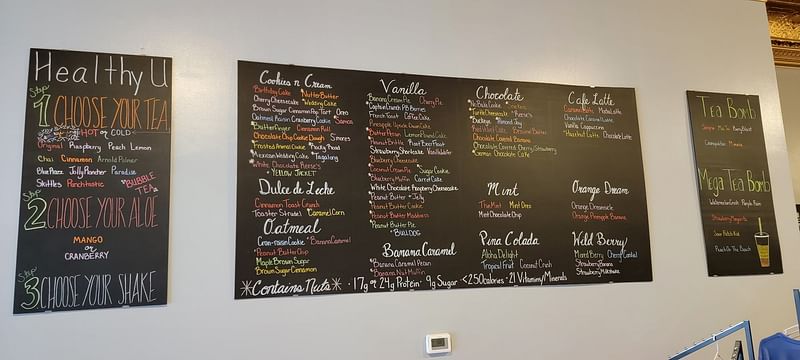 Healthy U
Step
1 CHOOSE YOUR TEA
HOT or COLD
Original Raspberry Peach Lemon
Chai Cinnamon Arnold Palmer
Blue Razz Jolly Rancher Paradise
Skittles Punchtastic
*BUBBLE TEA*
Step
2 CHOOSE YOUR ALOE
MANGO
or
CRANBERRY
Step
3 CHOOSE YOUR SHAKE
Cookies n Cream
Birthday Cake *Nutter Butter
Cherry Cheesecake *Wedding Cake
Brown Sugar Cinnamon Pop Tart Oreo
Oatmeal Raisin Cranberry Cookie Samoa
*Butterfinger Cinnamon Roll
Chocolate Chip Cookie Dough S'mores
Frosted Animal Cookie *Rocky Road
*Mexican Wedding Cake *Tagalong
White Chocolate Reese's
*YELLOW JACKET
Dulce de Leche
Cinnamon Toast Crunch
Toaster Strudel Caramel Corn
Oatmeal
Cran-raisin Cookie *Banana Caramel
*Peanut Butter Chip
Maple Brown Sugar
Brown Sugar Cinnamon
Vanilla
Banana Cream Pie Cherry Pie
Captain Crunch PB Berries
French Toast Coffee Cake
Pineapple Upside Down Cake
*Butter Pecan Lemon Pound Cake
*Peanut Brittle Root Beer Float
Strawberry Shortcake Vanilla Wafer
Blueberry Cheesecake
Coconut Cream Pie Sugar Cookie
Blueberry Muffin Carrot Cake
White Chocolate Raspberry Cheesecake
*Peanut Butter + Jelly
*Peanut Butter Cookie
*Peanut Butter Madness
*Peanut Butter Pie
*BULLDOG
Banana Caramel
*Banana Caramel Pecan
*Banana Nut Muffin
Chocolate
*No Bake Cookie
*Turtle Cheesecake *Reese's
*Buckeye *Almond Joy
Red Velvet Cake Banana Butter
Chocolate Covered Banana
Chocolate Covered Cherry/Strawberry
German Chocolate Cake
Mint
Thin Mint Mint Oreo
Mint Chocolate Chip
Pina Colada
Aloha Delight
Tropical Fruit Coconut Crush
Cafe Latte
Caramel Latte Mocha Latte
Chocolate Caramel Latte
Vanilla Cappuccino
*Hazelnut Latte Chocolate Latte
Orange Dream
Orange Dreamsicle
Orange Pineapple Banana
Wild Berry
Mixed Berry Cherry Cordial
Strawberry Banana
Strawberry Milkshake
*Contains Nuts* · 17g or 24g Protein · 9g Sugar · <250 calories · 21 Vitamins/Minerals
Tea Bomb
Mai Tai
Mimosa
Mega Tea Bomb
Watermelon Crush Purple Rain
Strawberry Margarita
Sour Patch Kid
Peach On The Beach